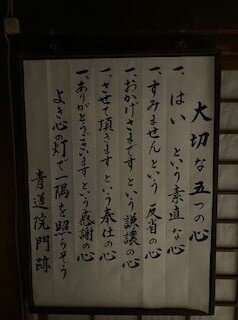 大切な五つの心
一、はい という素直な心
一、すみませんという 反省の心
一、おかげさまですという謙譲の心
一、させて頂きます という奉仕の心
一、ありがとうございますという感謝の心
よき心の灯で隅を照らそう
青蓮院門跡